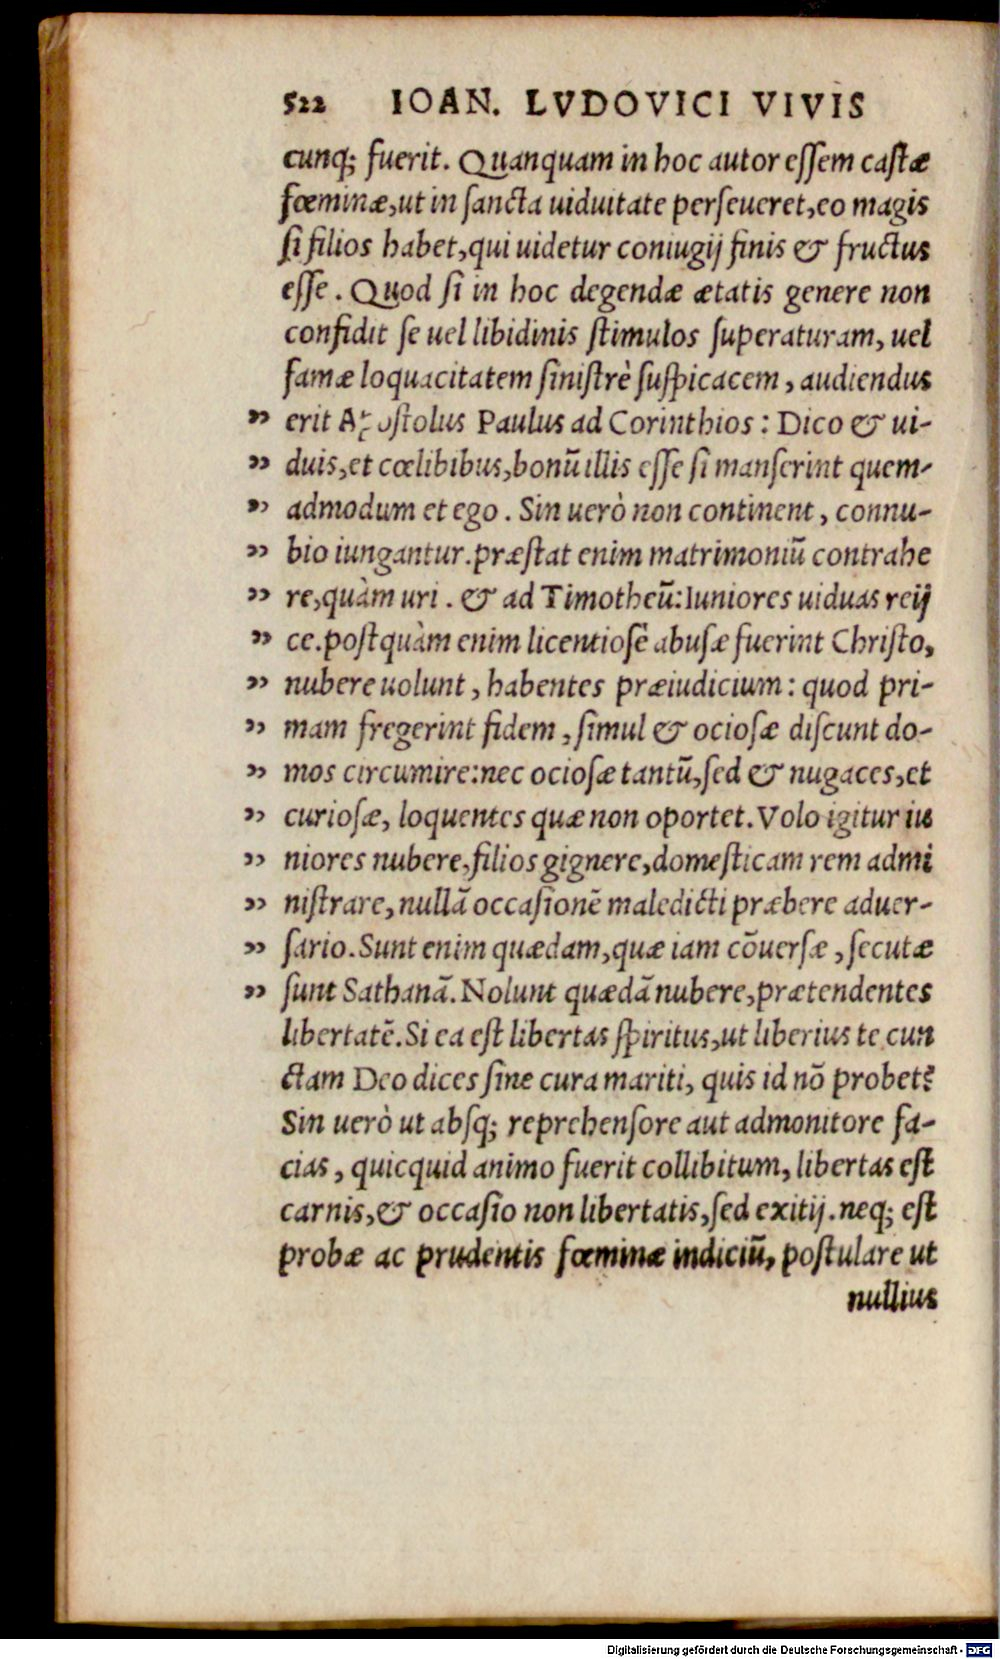 522 IOAN. LVDOVICI VIVIS
cunq; fuerit. Quanquam in hoc autor essem castæ
fœminæ,ut in sancta uiduitate perseueret,eo magis
si filios habet,qui uidetur coniugij finis & fructus
esse. Quod si in hoc degendæ ætatis genere non
confidit se uel libidinis stimulos superaturam, uel
famæ loquacitatem sinistrè suspicacem, audiendus
„ erit Apostolus Paulus ad Corinthios: Dico & ui-
„ duis,et cœlibibus,bonū illis esse si manserint quem-
„ admodum et ego. Sin uerò non continent, connu-
„ bio iungantur.præstat enim matrimoniū contrahe
„ re,quàm uri. & ad Timotheū:Iuniores uiduas reij
„ ce.postquàm enim licentiosè abusæ fuerint Christo,
„ nubere uolunt, habentes præiudicium: quod pri-
„ mam fregerint fidem, simul & ociosæ discunt do-
„ mos circumire:nec ociosæ tantū,sed & nugaces,et
„ curiosæ, loquentes quæ non oportet. Volo igitur iu
„ niores nubere,filios gignere,domesticam rem admi
„ nistrare,nullā occasionē maledicti præbere aduer-
„ sario. Sunt enim quædam,quæ iam cōuersæ, secutæ
„ sunt Sathanā. Nolunt quædā nubere,prætendentes
libertatē. Si ea est libertas spiritus,ut liberius te cun
ctam Deo dices sine cura mariti, quis id nō probet?
Sin uerò ut absq; reprehensore aut admonitore fa-
cias, quicquid animo fuerit collibitum, libertas est
carnis,& occasio non libertatis,sed exitij. neq; est
probæ ac prudentis fœminæ indiciū, postulare ut
nullius
Digitalisierung gefördert durch die Deutsche Forschungsgemeinschaft - DFG